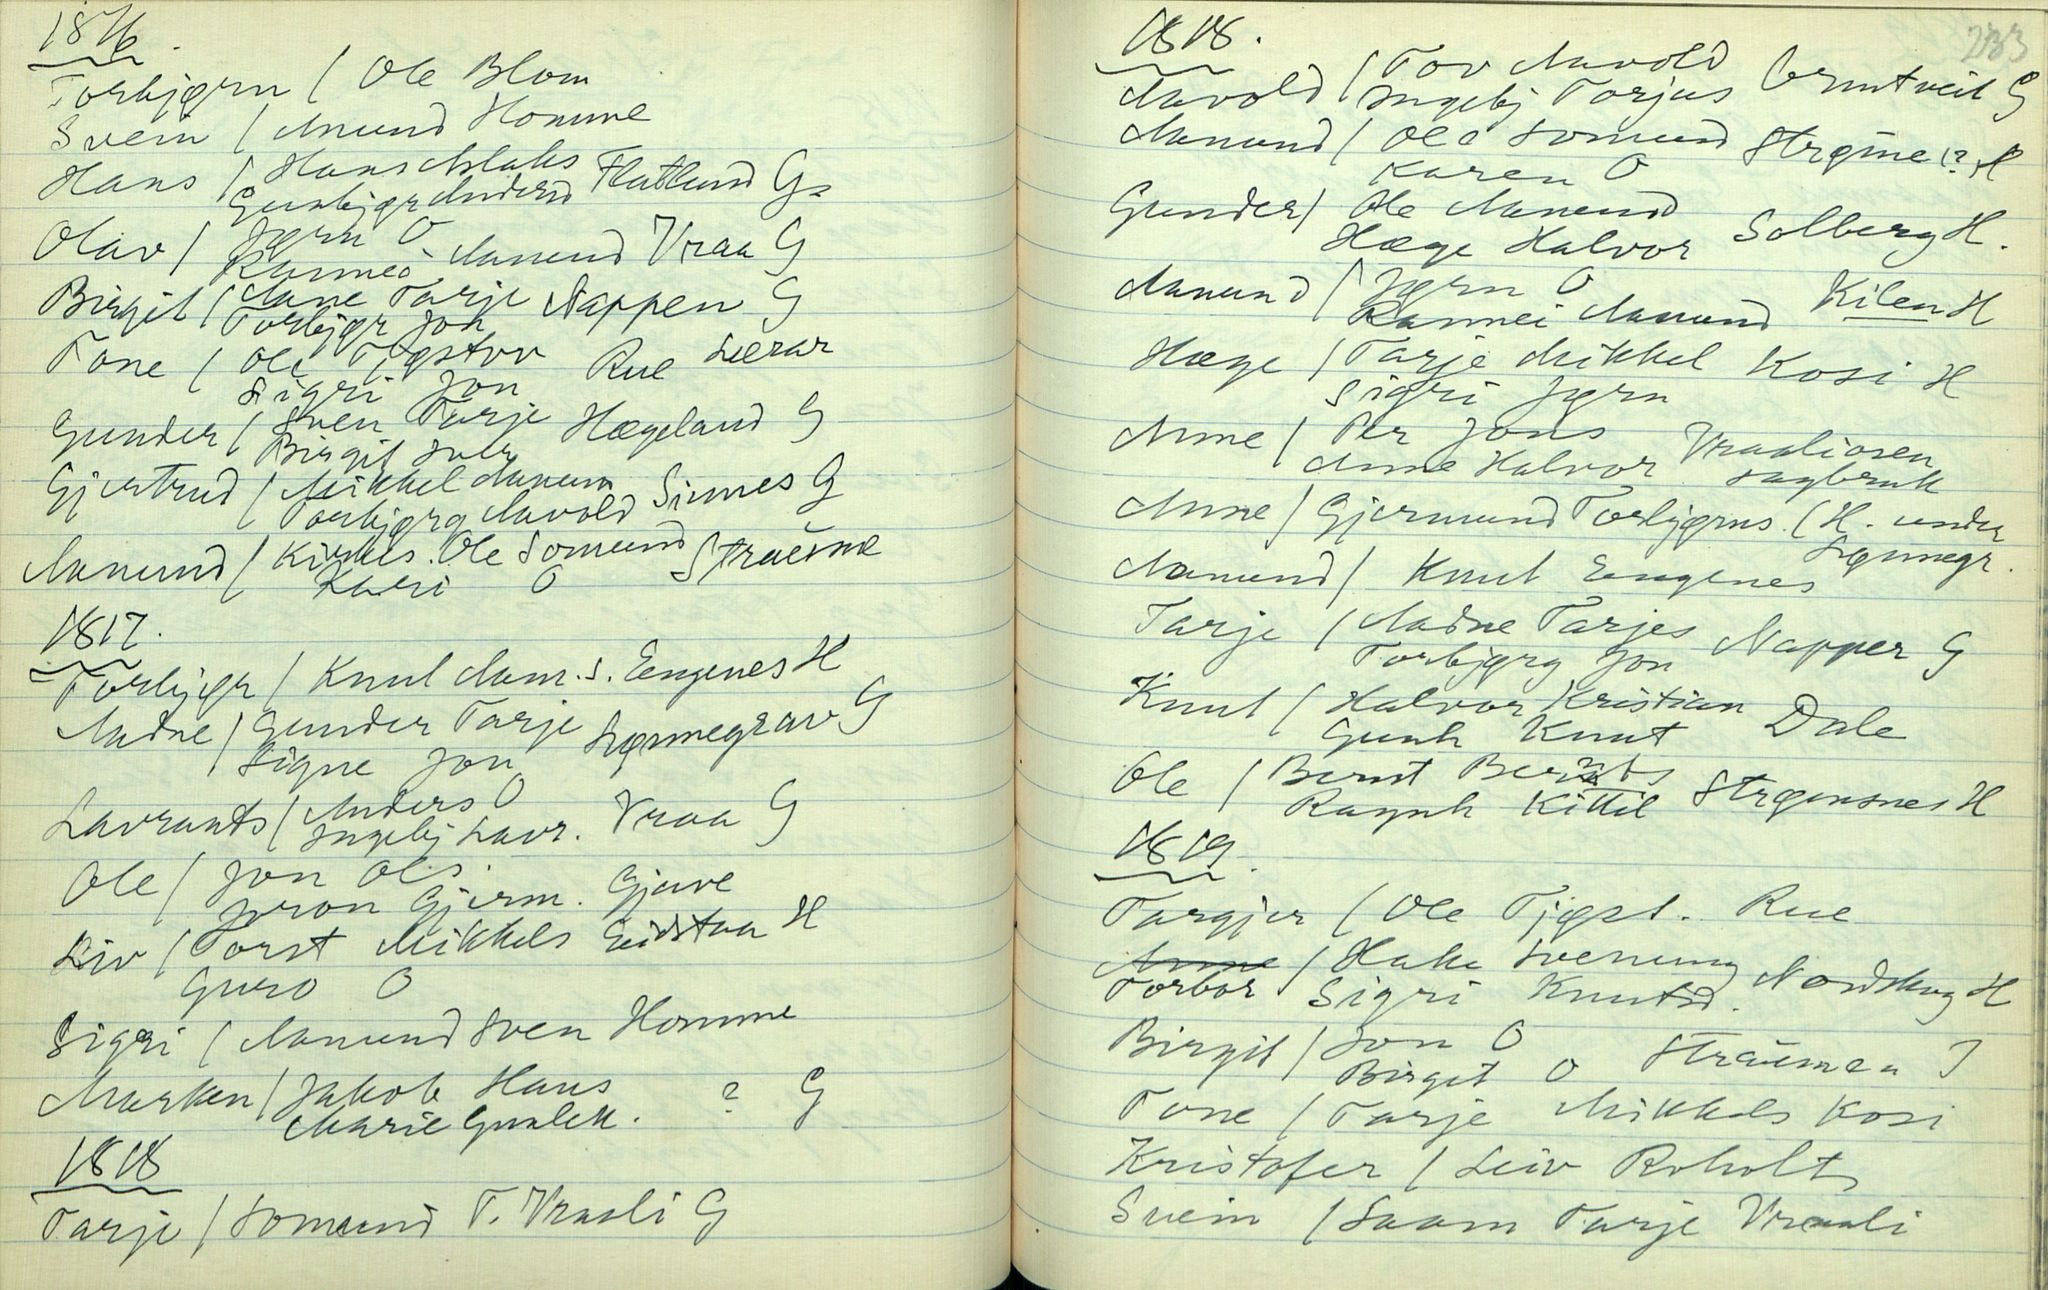 1816.
Torbjørn / Ole Blom
Svein / Anund Homme
Hans / Hans Aslaks
Gunbjør Anders Flatlund G
Olav / Jørn O
Rannei Aanund Vraa G
Birgit / Aane Tarje Nappen G
Torbjør Jon
Tone / Ole Tjøstov Rue
Sigri Jon
Gunder / Sven Tarje Hægeland G
Birgit
Gjertrud / Mikkel Aanun Sinnes G
Torbjørg Aavold
Aanund / Ole Somund Straume
Kari O
1817.
Torbjør / Knut Aan. s. Eugenes H
Aadne / Gunder Tarje Lønnegrav G
Signe Jon
Lavrants / Anders O
Ingebj Lavr. Vraa G
Ole / Jon Ols.
Joron Gjerm. Gjuve
Liv / Torst Mikkels Eidstaa H
Guro O
Sigri / Aanund Sven Homme
Marken / Jakob Hans ? G
Marie Gunlek.
1818
Tarje / Somund T. Vraali G
233
1818.
Aavold / Tov Aavold
Ingebj Torjus G
Aanund / Ole Somund Strøme (? H
Karen O
Gunder / Ole Aanund
Hæge Halvor Solberg H.
Aanund / Jørn O
Rannei Aanund Kilen H
Hæge / Tarje Mikkel Kosi H
Sigri Jørn
Anne / Per Jons Vraaliosen
Anne Halvor sagbruk
Anne / Gjermund Torbjørns. (H. under
Lønnegr.
Aanund / Knut Eugenes
Tarje / Aadne Tarjes Napper G
Torbjørg Jon
Knut / Halvor Kristian
Gunh Knut Dale
Ole / Bernt Bernts
Ragnh Kittil Strømsnes H
1819.
Targjer / Ole Tjøst. Rue
Anne / Hake Svenung Nordskog H
Torbor Sigri Knutsd.
Birgit / Jon O
Birgit O Straumen J
Tone / Tarje Mikkels Kosi
Kristofer / Leiv Roholt
Svein / Saam Tarje Vraali